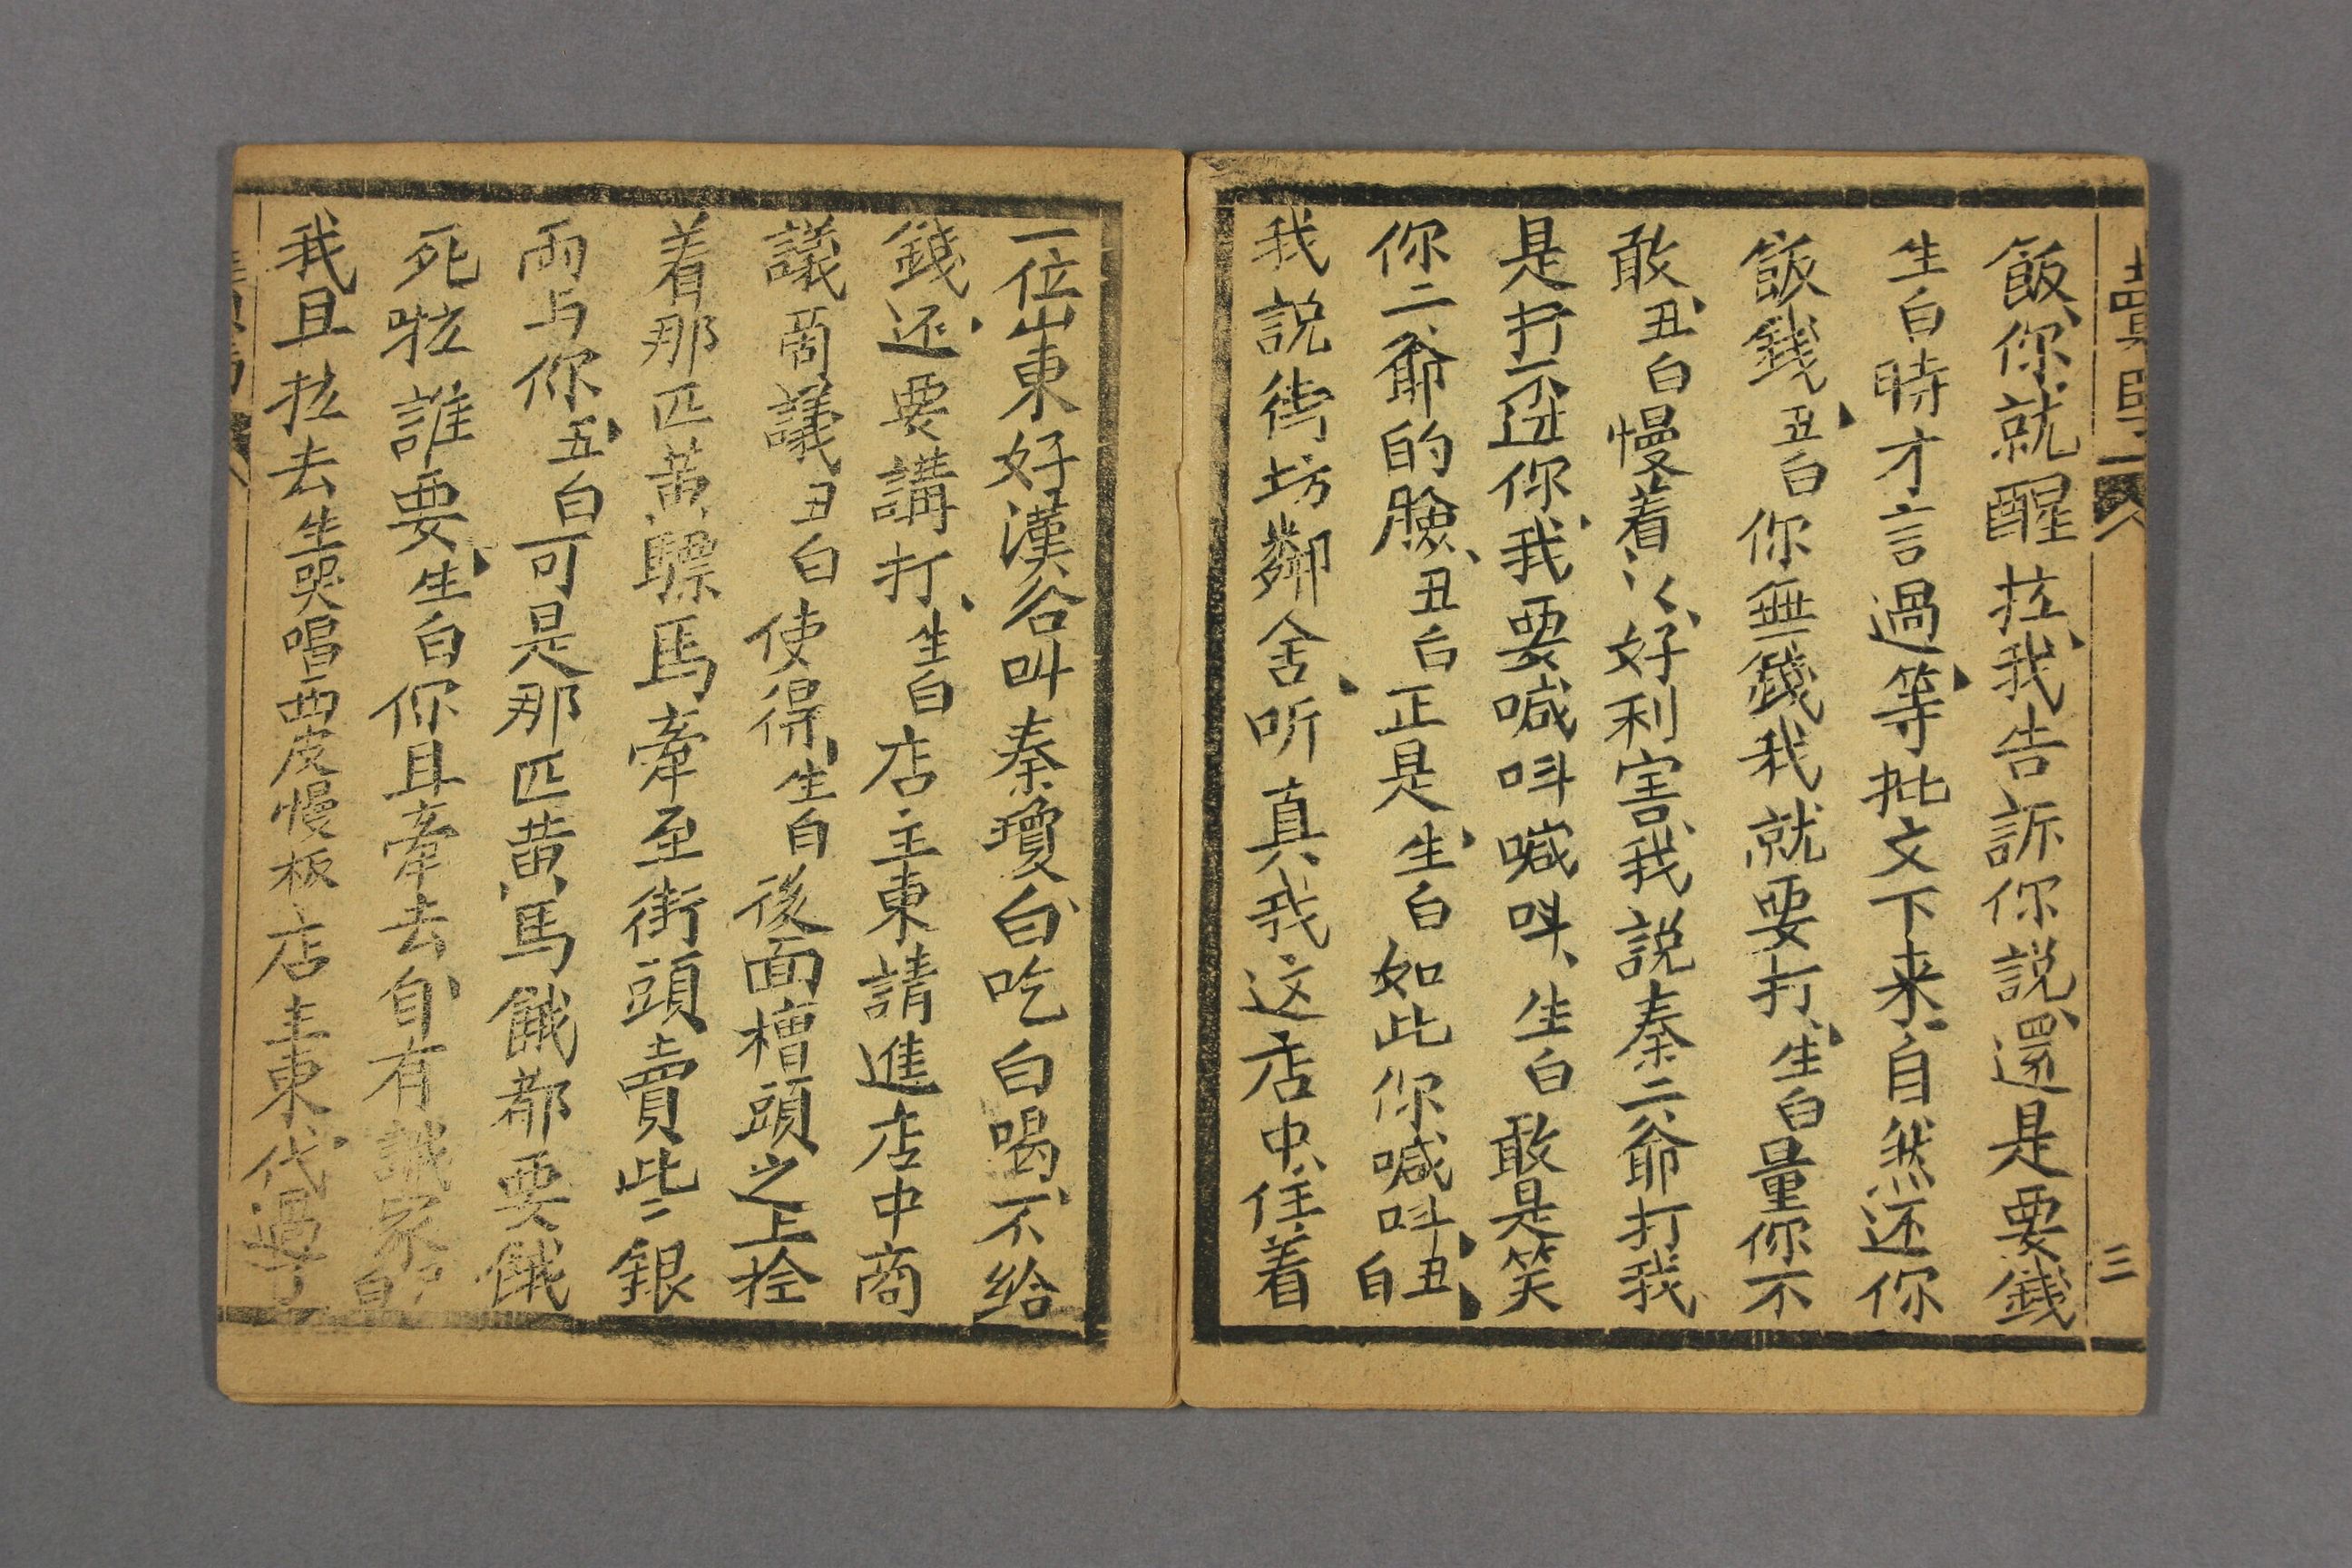 賣馬
三
飯你就醒拉我告訴你説還是要銭
生白時才言過等批文下来自然还你
飯銭丑白你無錢我就要打生白量你不
敢丑白慢着〻好利害我説秦二爺打我
是打不过你我要喊呌喊呌生白敢是笑
你二爺的臉丑白正是生白如此你喊呌丑白
我説街坊鄰舍听真我这店中住着
一位山東好漢名叫秦瓊白吃白喝不给
錢还要講打生白店主東請進店中商
議商議丑白使得生白後面槽頭之上拴
着那匹黄驃馬牽至街頭賣些銀
両与你丑白可是那匹黄馬餓都要餓
死啦誰要生白你且牽去自有識家丑白
我且拉去生哭唱西皮慢板店主東代過了